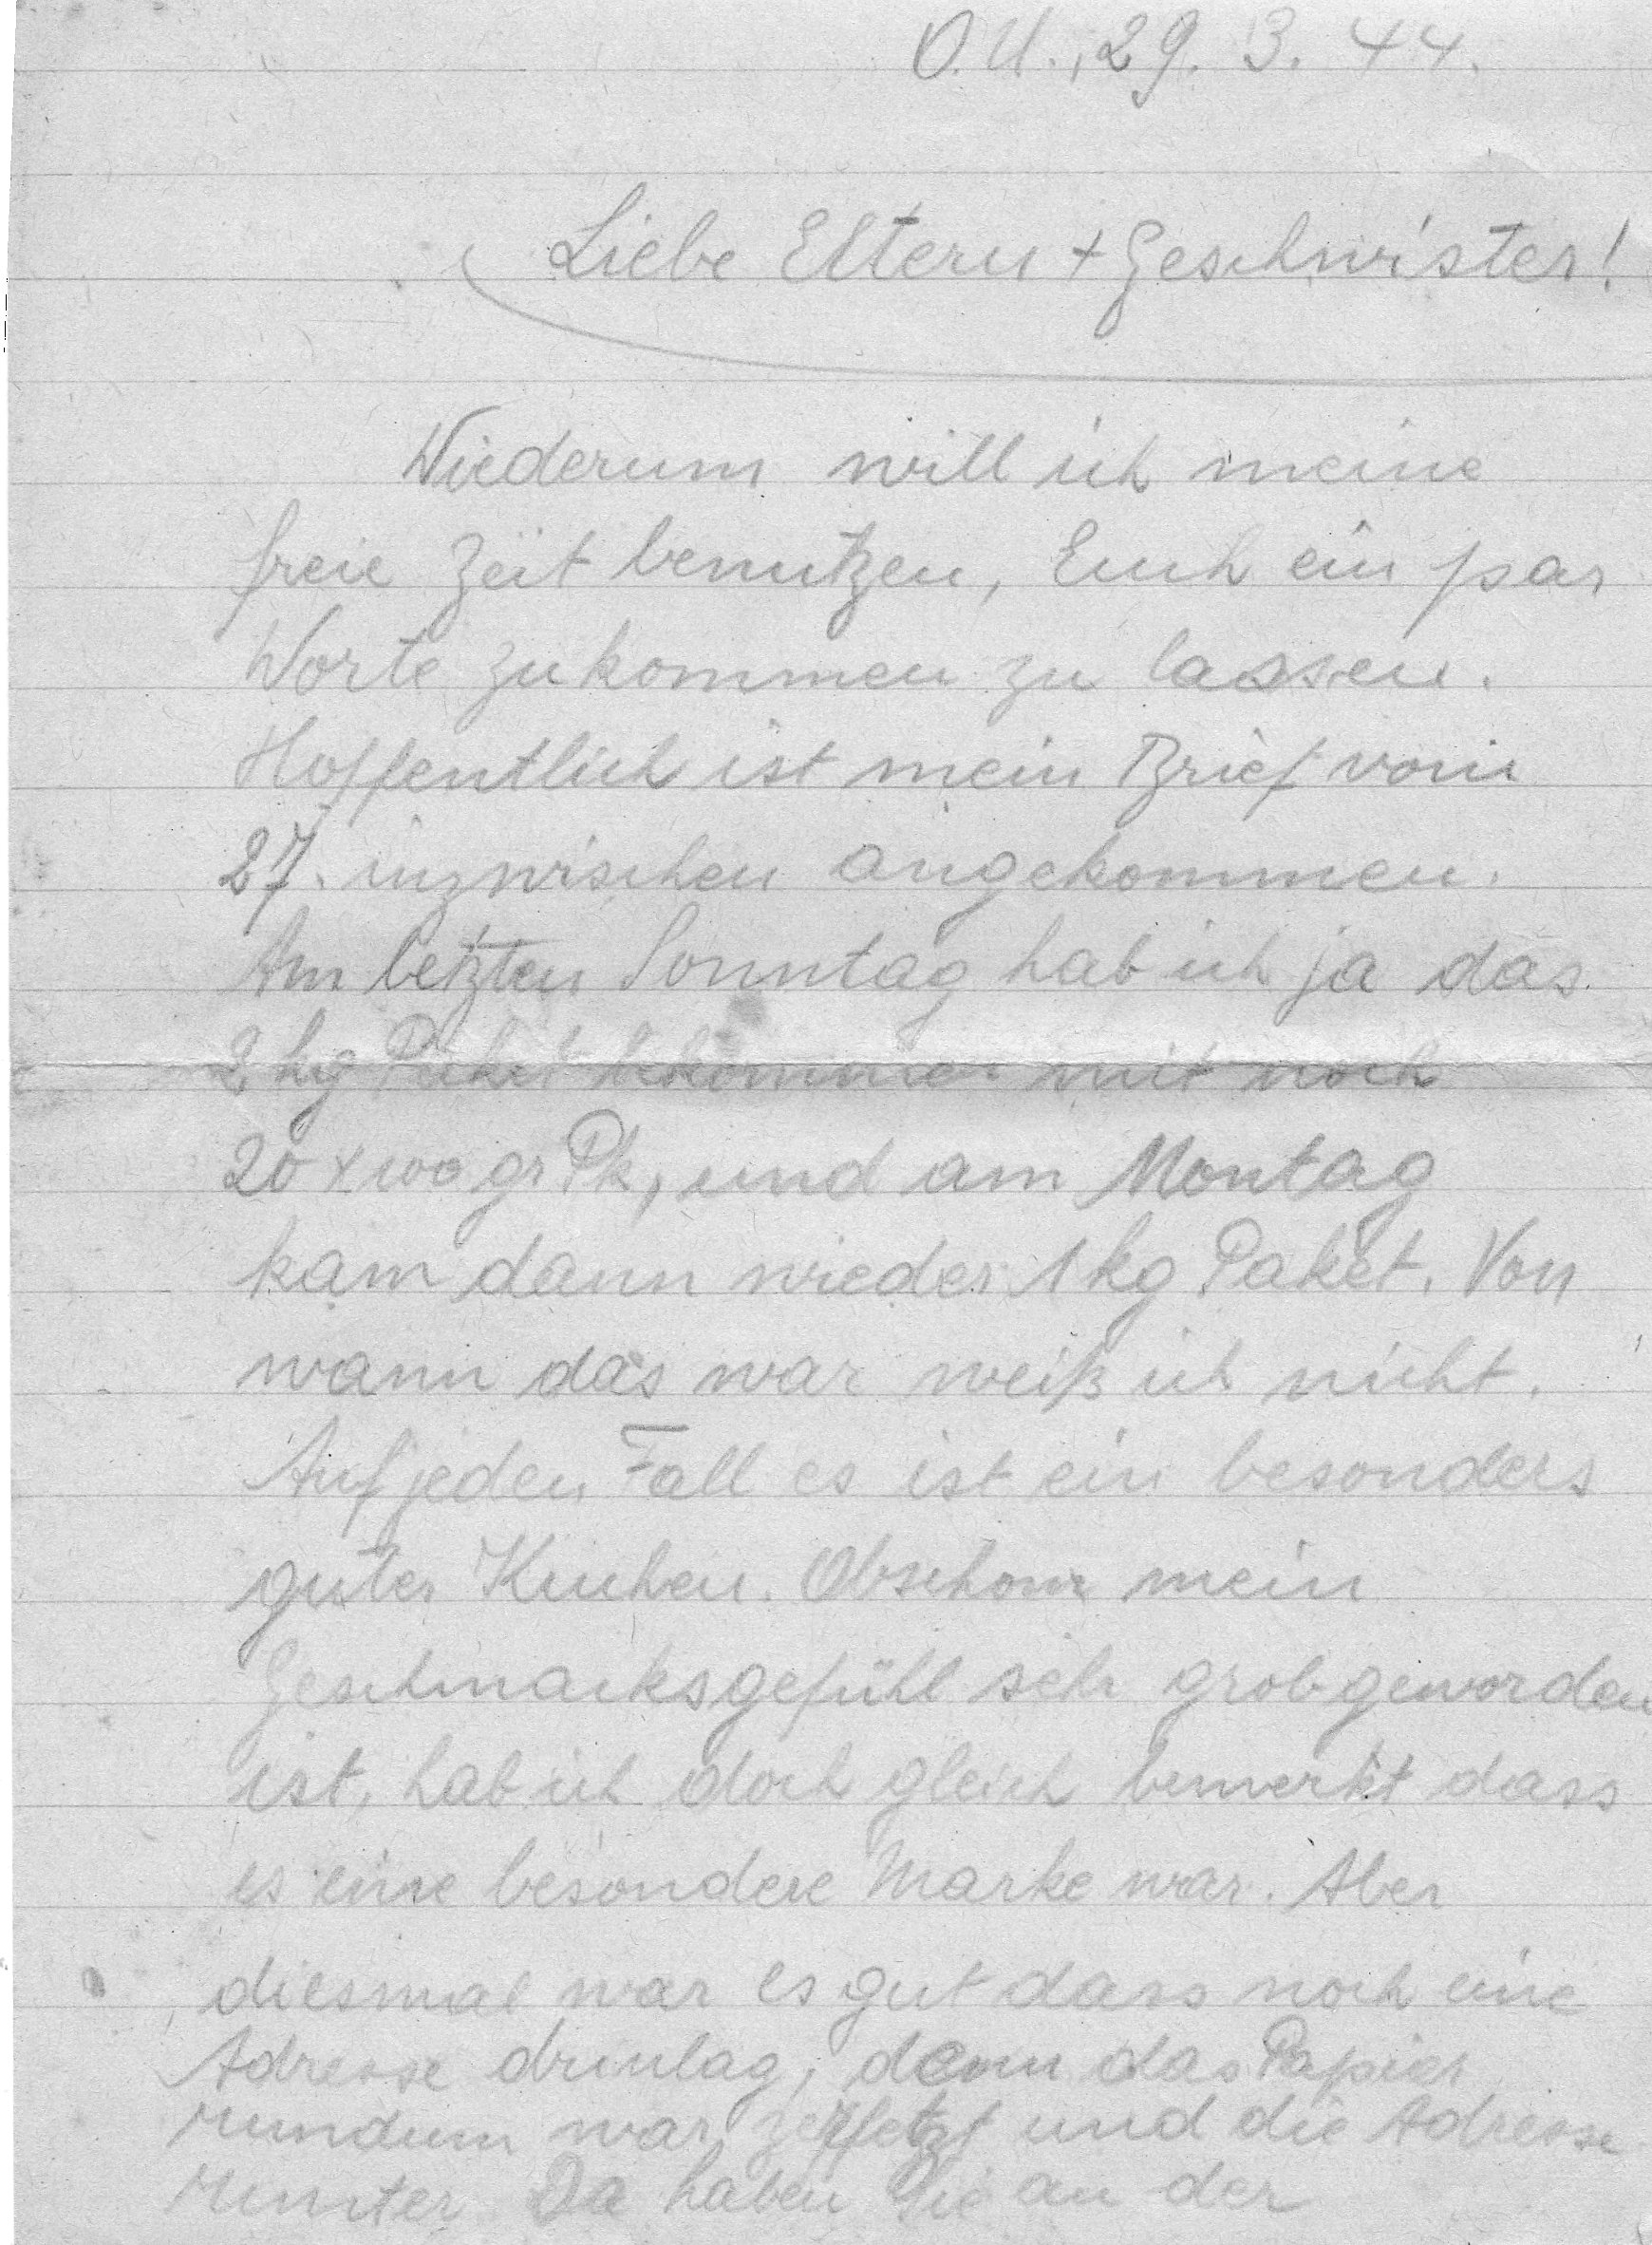 O.U., 29. 3. 44.
Liebe Eltern + Geschwister!
Wiederum will ich meine
freie Zeit benutzen, Euch ein par
Worte zukommen zu lassen.
Hoffentlich ist mein Brief vom
27. inzwischen angekommen.
Am letzten Sonntag hab ich ja das
2 kg Paket bekommen mit noch
20 x 100 gr. Pk, und am Montag
kam dann wieder 1 kg Paket. Von
wann das war weiß ich nicht.
Auf jeden Fall es ist ein besonders
guter Kuchen. Obschon mein
Geschmacksgefühl sehr grob geworden
ist, hab ich doch gleich bemerkt dass
es eine besondere Marke war. Aber
diesmal war es gut dass noch eine
Adresse drinlag, denn das Papier
rundum war zerfetzt und die Adresse
runter. Da haben sie an der